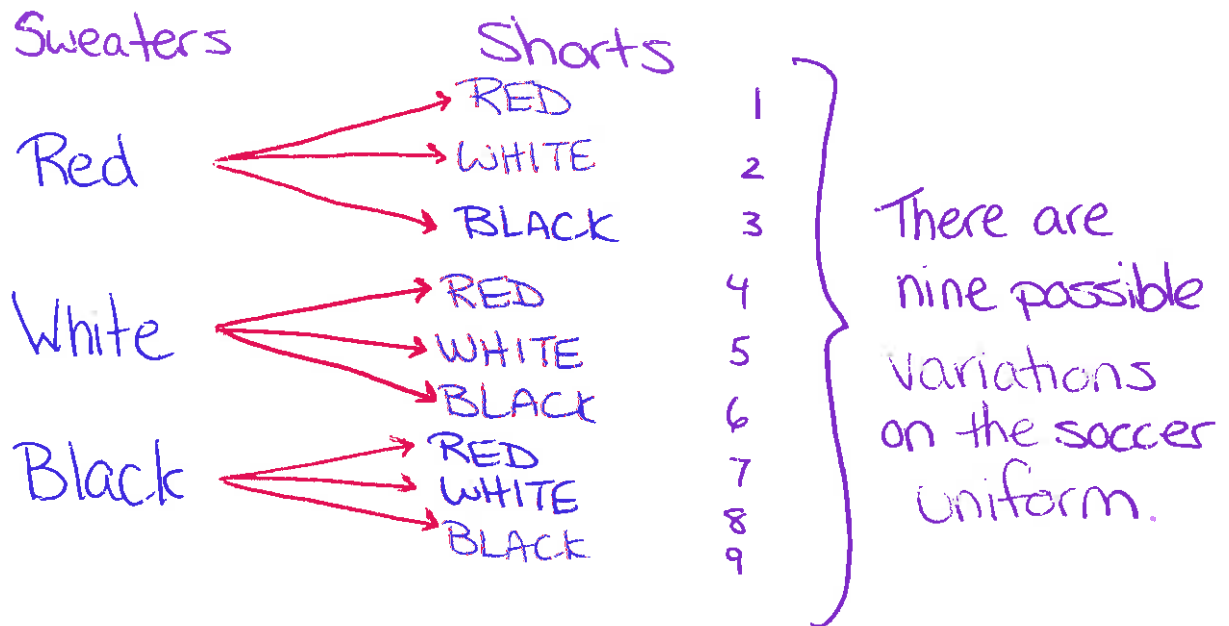 Sweaters Shorts
RED 1
Red WHITE 2
BLACK 3
RED 4
White WHITE 5
BLACK 6
RED 7
Black WHITE 8
BLACK 9
There are
nine possible
variations
on the soccer
uniform.